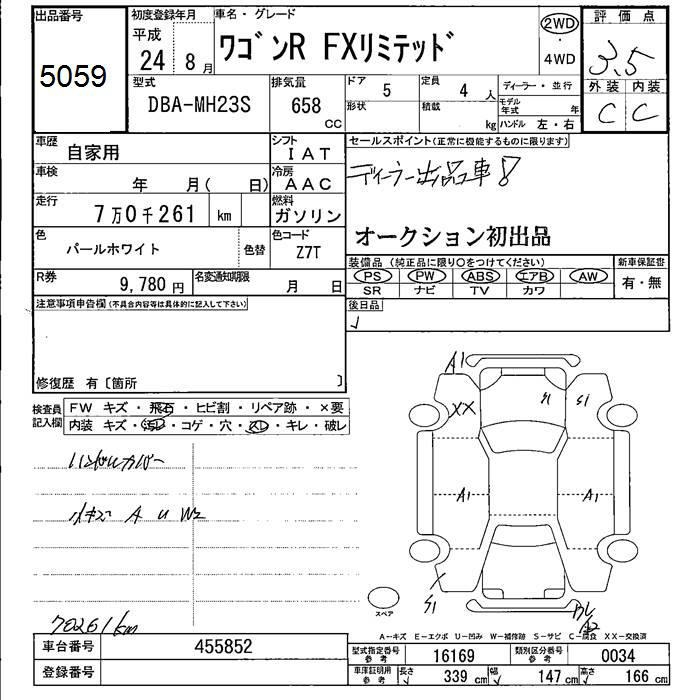 出品番号
5059
初度登録年月
平成
24年 8月
車名・グレード
ワゴンR FXリミテッド
2WD
・
4WD
評価点
3.5
外装 内装
C C
型式
DBA-MH23S
排気量
658
CC
ドア
5
形状
定員
4人
積載
kg
ディーラー・並行
モデル年式 年
ハンドル 左・右
車歴
自家用
シフト
IAT
車検
年 月( 日)
冷房
AAC
走行
7万0千261 km
燃料
ガソリン
色
パールホワイト
色替
色コード
Z7T
R券
9,780円
名変通知期限
月 日
セールスポイント(正常に機能するものに限ります)
ディーラー出品車!
オークション初出品
装備品(純正品に限り○をつけてください)
PS PW ABS エアB AW
SR ナビ TV カワ
新車保証書
有・無
後日品
注意事項申告欄(不具合内容等は具体的に記入して下さい)
修復歴 有〔箇所 〕
検査員記入欄
FW キズ・飛石・ヒビ割・リペア跡・×要
内装 キズ・汚レ・コゲ・穴・スレ・キレ・破レ
小キズ A U W2
70261km
A1
XX
S1
A1
A1
S1
A2
スペア
A-キズ E-エクボ U-凹み W-補修跡 S-サビ C-腐食 XX-交換済
車台番号
455852
登録番号
型式指定番号
参考
16169
類別区分番号
参考
0034
車庫証明用
参考
長さ
339 cm
幅
147 cm
高さ
166 cm